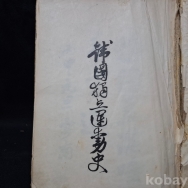 韓國獨立運動史
kobay